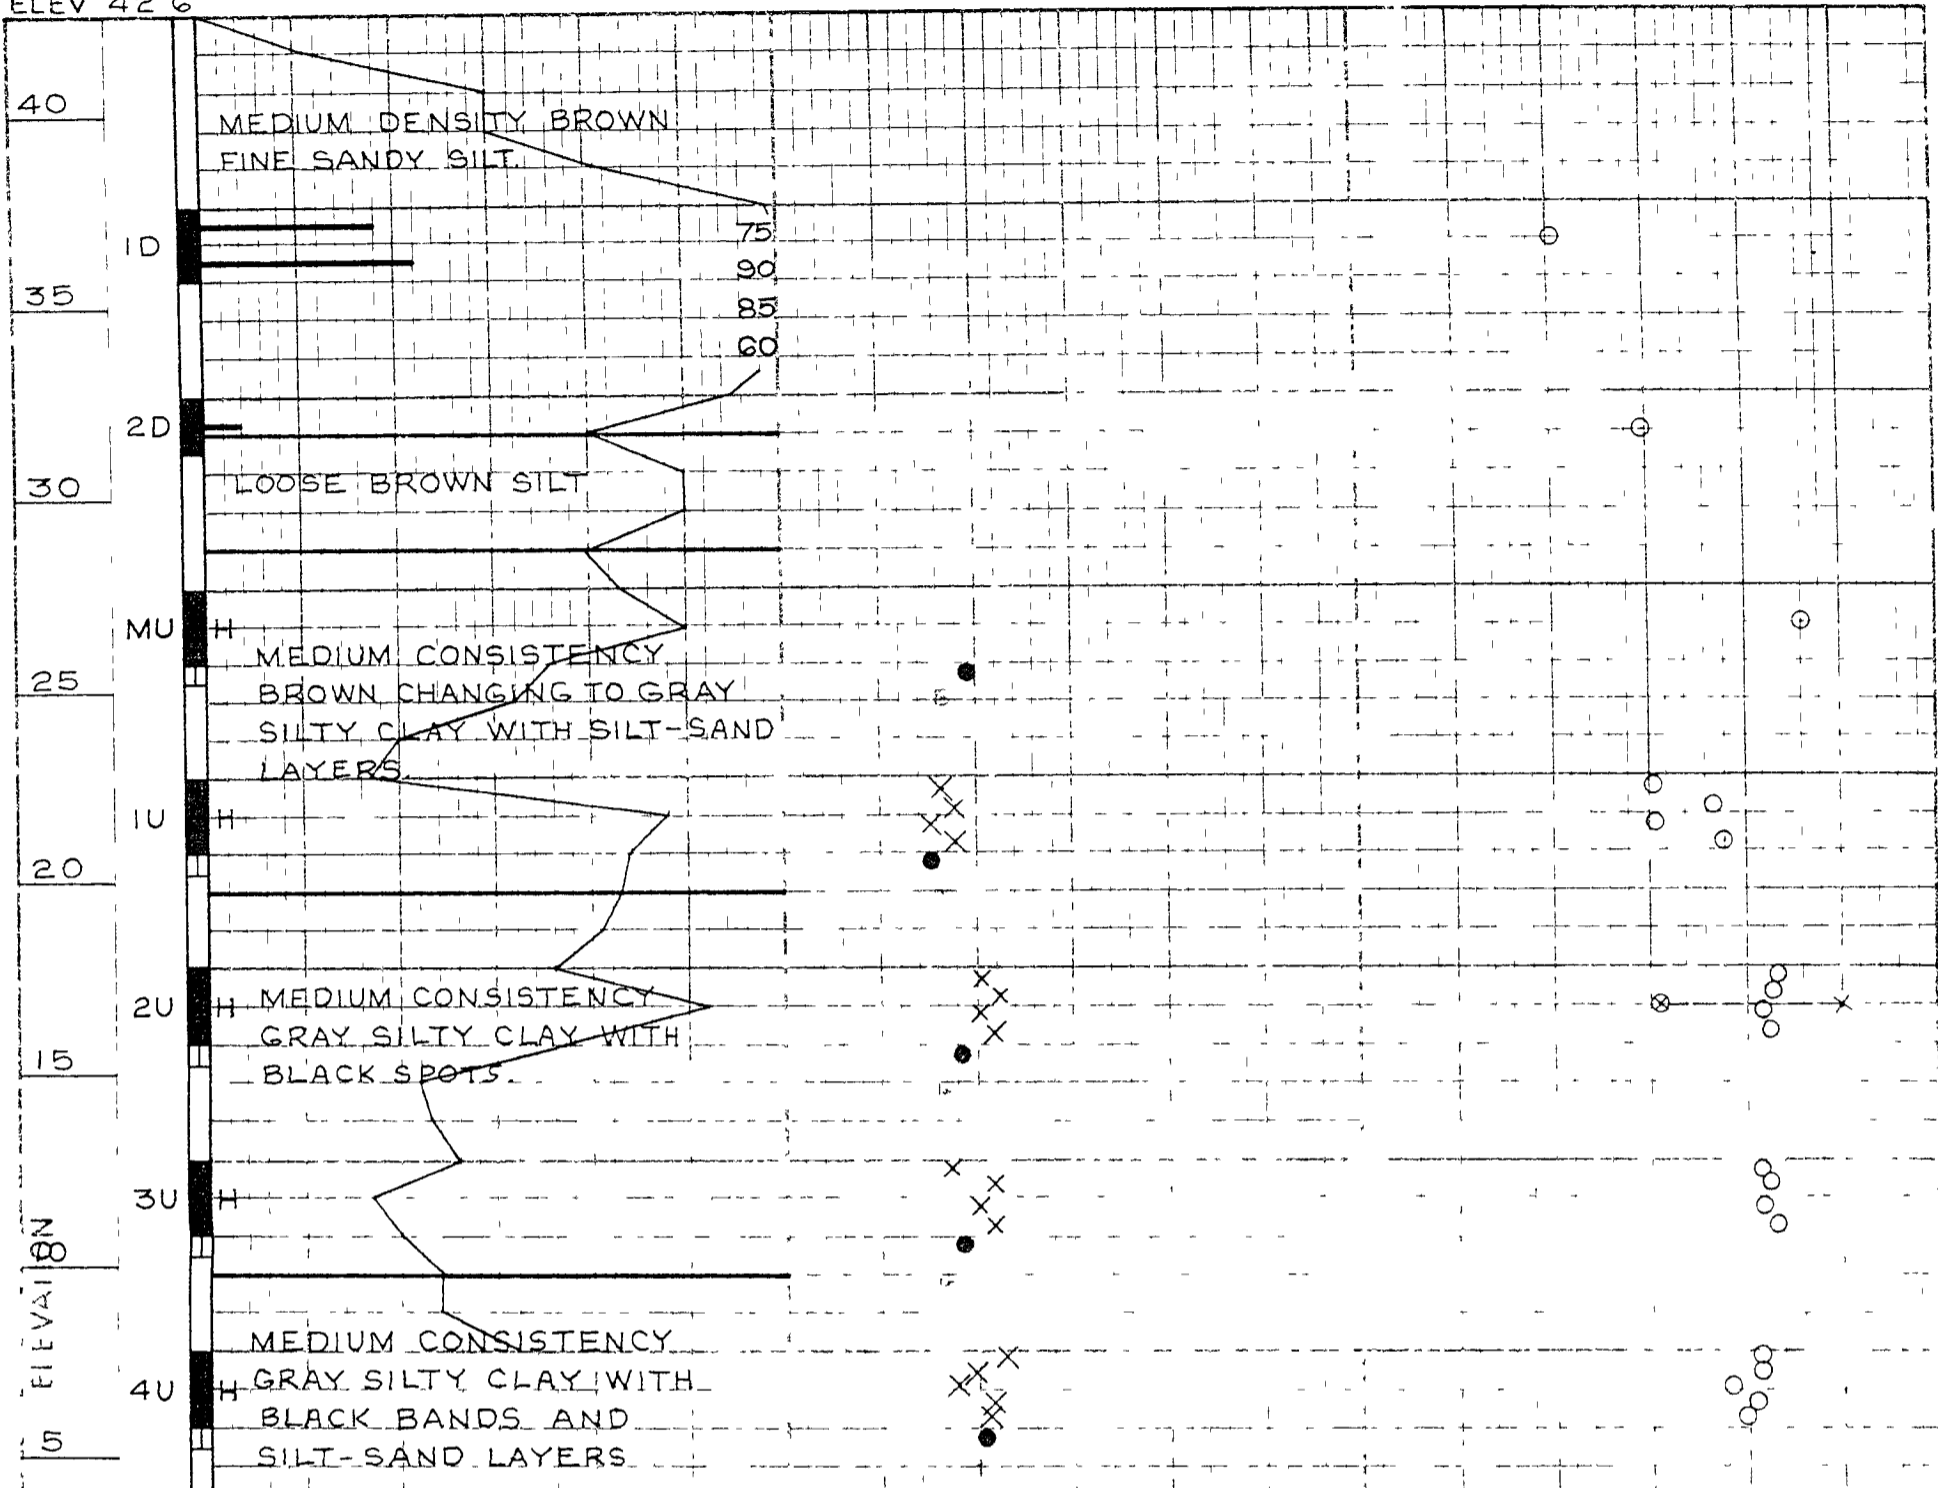 ELEV 42 6
40
MEDIUM DENSITY BROWN
FINE SANDY SILT.
75
1D
90
35
85
60
2D
LOOSE BROWN SILT
30
MU H
MEDIUM CONSISTENCY
BROWN CHANGING TO GRAY
25
SILTY CLAY WITH SILT-SAND
LAYERS.
1U H
20
2U H
MEDIUM CONSISTENCY
GRAY SILTY CLAY WITH
15
BLACK SPOTS.
3U H
10
ELEVATION
MEDIUM CONSISTENCY
4U H
GRAY SILTY CLAY WITH
BLACK BANDS AND
5
SILT-SAND LAYERS